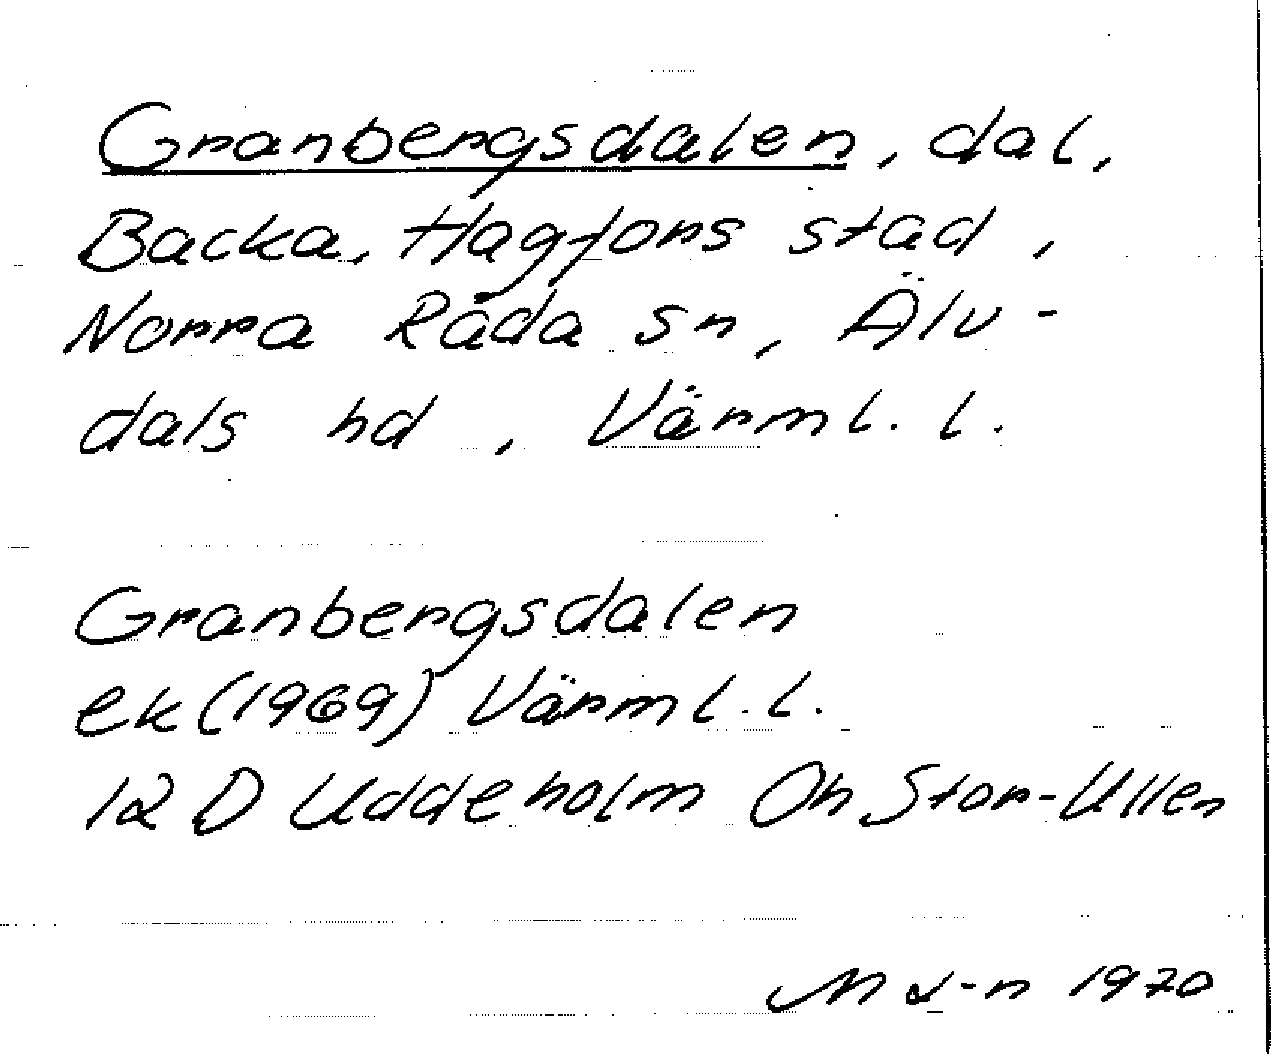 Granbergsdalen, dal,
Backa, Hagfors stad,
Norra Råda sn, Älv-
dals hd, Värml. l.
Granbergsdalen
ek (1969) Värml. l.
12 D Uddeholm Oh Stor-Ullen
1970